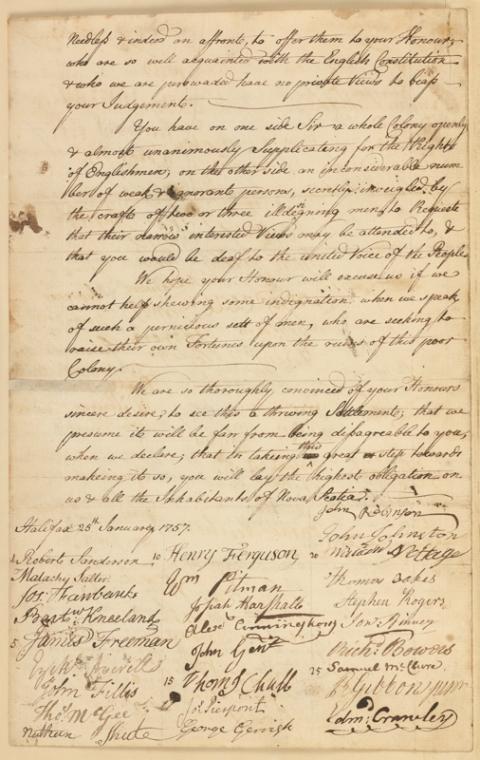 Needless & indeed an affront, to offer them to your Honour,
who are so well acquainted with the English Constitution
& who we are perswaded have no private Views to biass
your Judgement.
You have on one side Sir a whole Colony openly
& almost unanimously Supplicating for the Rights
of Englishmen; on the other side an inconsiderable num
ber of weak & ignorant persons, secretly inveigled by
the crafts of two or three ill designing men, to Requeste
that their narrow interested Views may be attended to, &
that you would be deaf to the united Voice of the People
We hope your Honour will excuse us if we
cannot help shewing some indignation, when we speak
of such a pernicious sett of men, who are seeking to
raise their own Fortunes upon the ruins of this poor
Colony.
We are so thoroughly convinced of your Honours
sincere desire, to see this a thriving Settlement; that we
presume it will be far from being disagreable to you,
when we declare; that in takeing this great step towards
making it so, you will lay the highest obligation on
us & all the Inhabitants of Nova Scotia.
John Robinson
Halifax 25th January, 1757.
John Johnston
Robert Sanderson 10 Henry Ferguson 20 William Nottage
Malachy Salter Wm Pitman Thomas
Jos: Fairbanks Josiah Marshall Stephen Rogers
Bartw Kneeland Alexr Cunningham Jon Kinney
5 James Freeman John Gent Richd Bowers
15 Thoms Chubb 25 Samuel McClure
John Fillis Jos Pierpont Gibbon junr
Thos McGee George Gerrish Edmd Crawley
Nathan